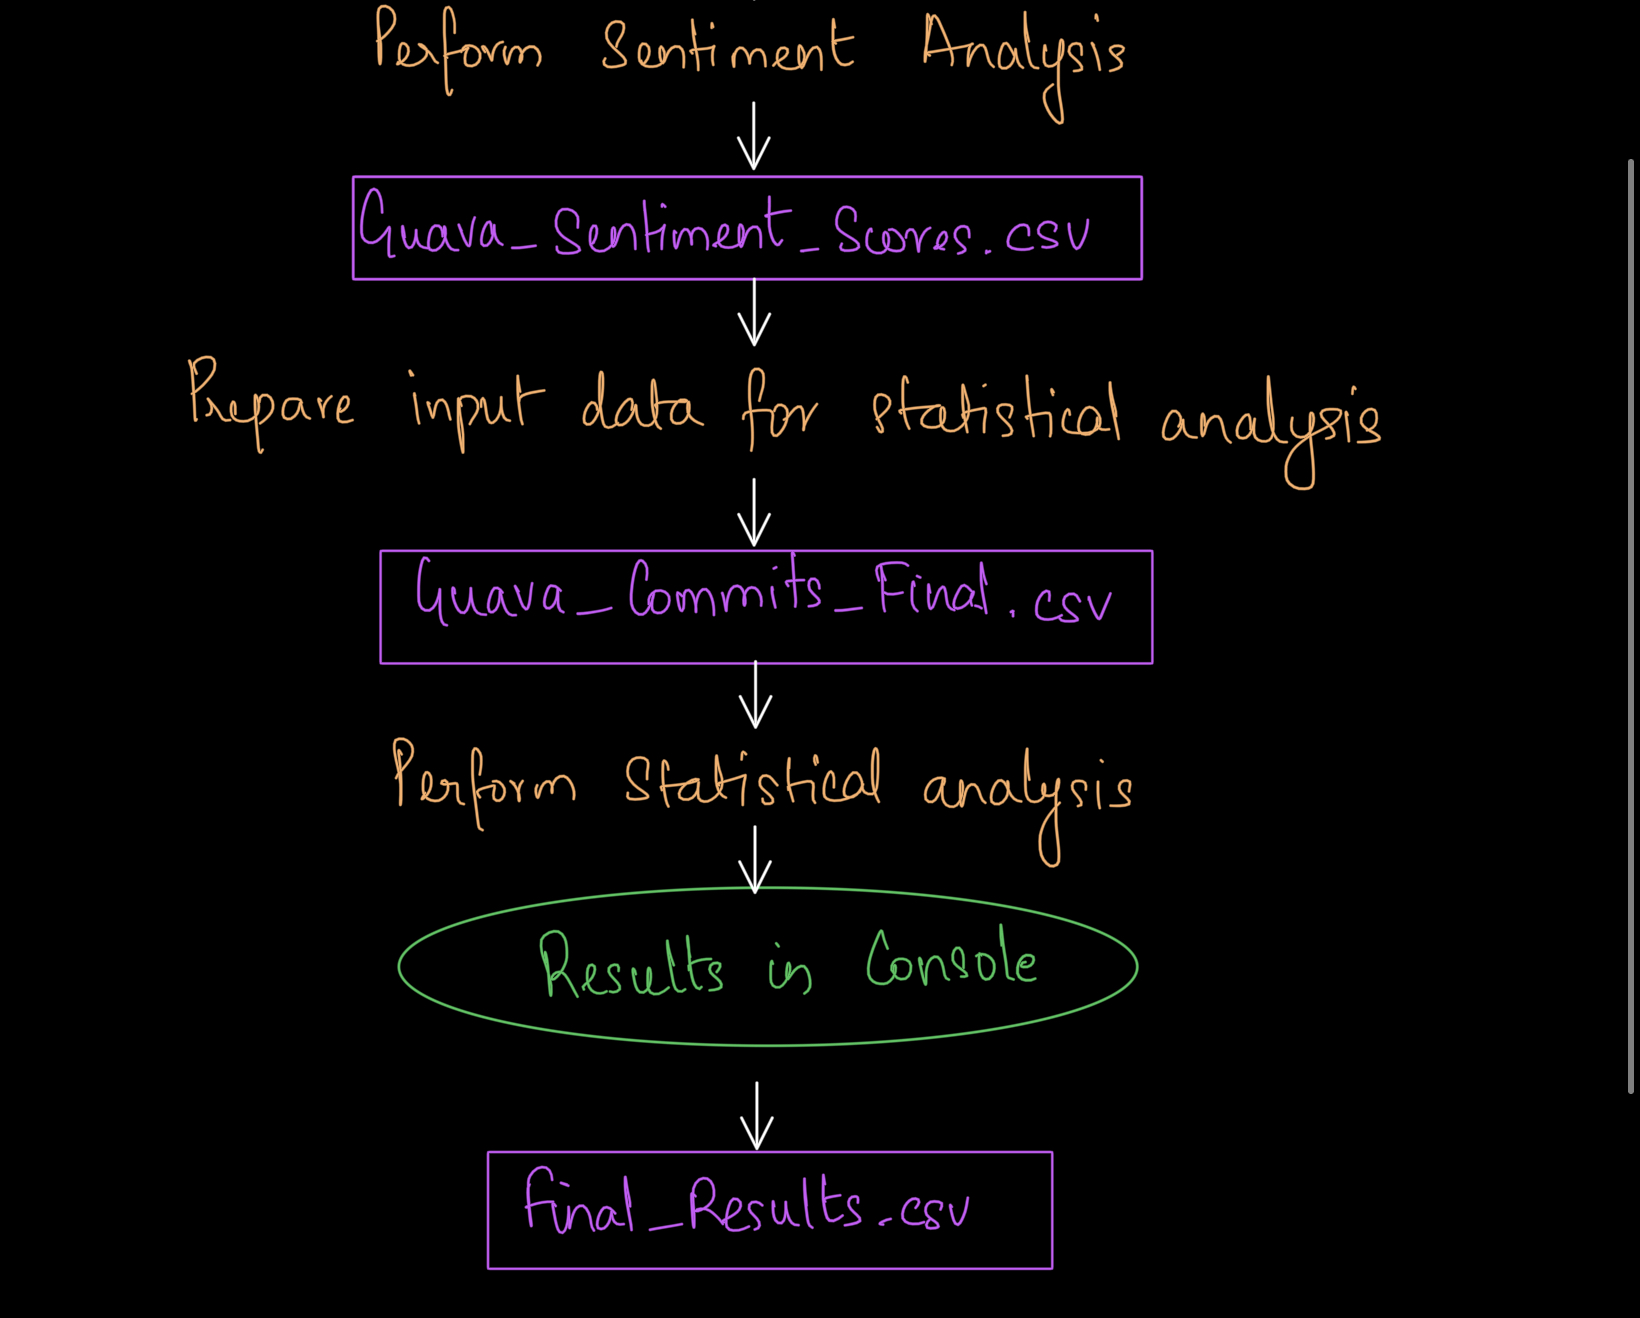 Perform Sentiment Analysis
Guava_Sentiment_Scores.csv
Prepare input data for statistical analysis
Guava_Commits_Final.csv
Perform Statistical analysis
Results in Console
Final_Results.csv